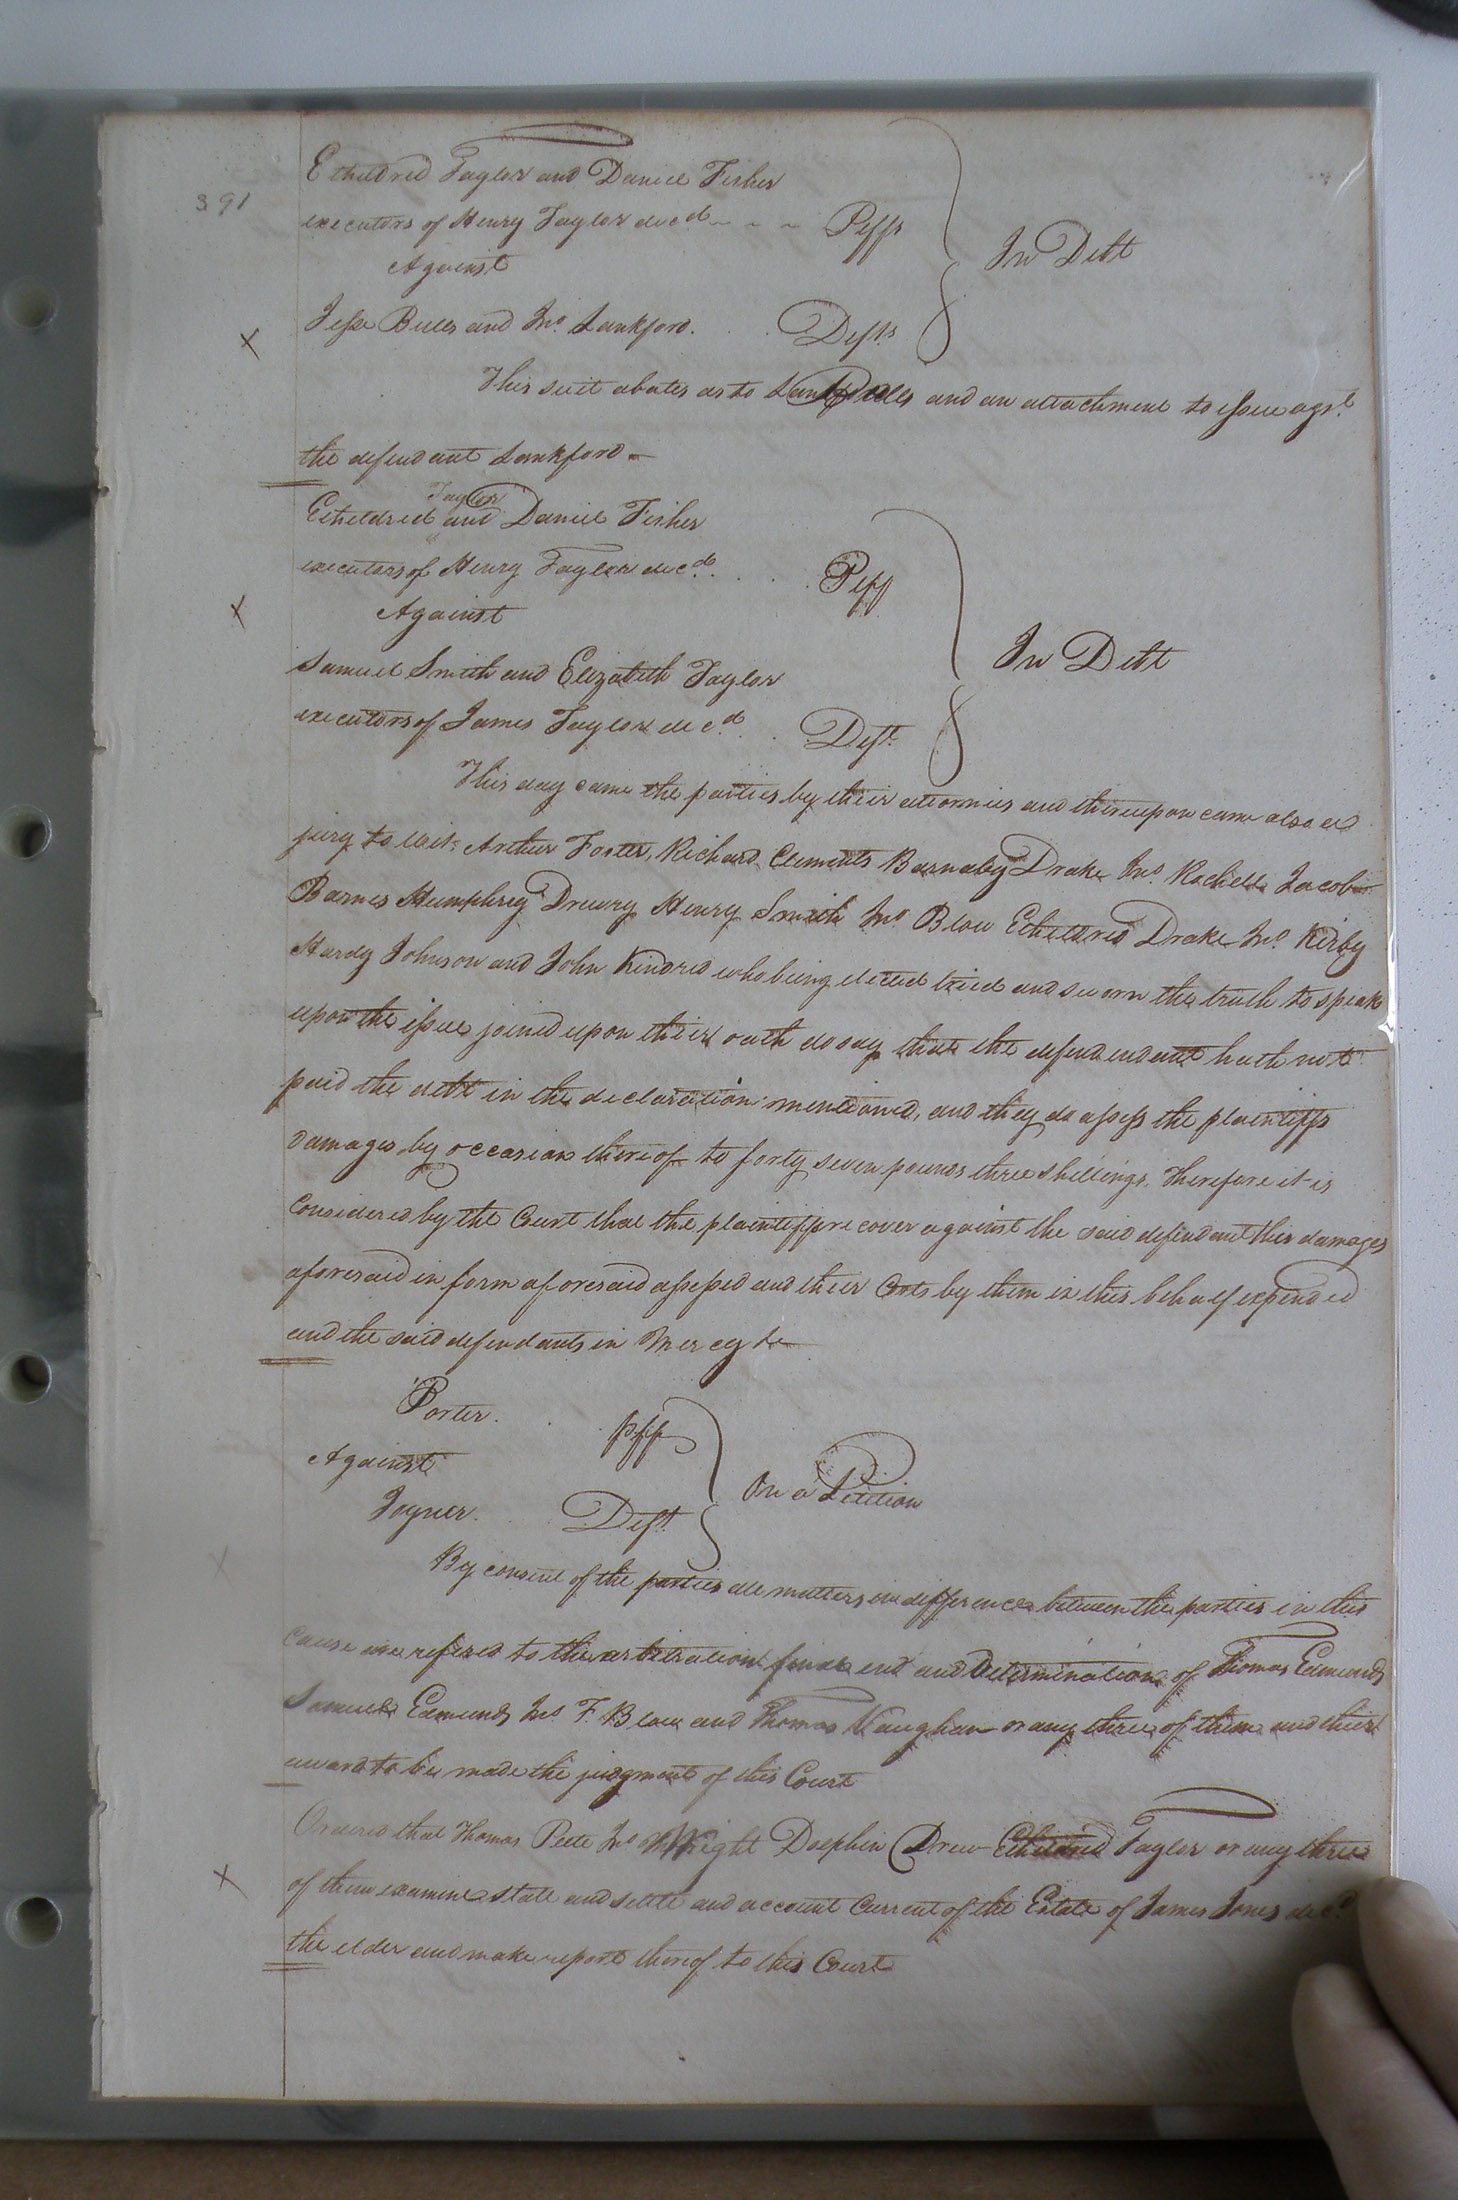 391
Etheldred Taylor and Daniel Fisher
executors of Henry Taylor decd - - - Plffs
Against
In Debt
Jesse Bulls and Jno. Lankford. . . Defts
This suit abates as to Bulls and an attachment to issue agst.
the defendant Lankford
Taylor
Etheldred and Daniel Fisher
executors of Henry Taylor decd. . . . Plff
Against
In Debt
Samuel Smith and Elizabeth Taylor
executors of James Taylor decd. . Deft.
This day came the parties by their attornies and thereupon came also a
jury to wit: Arthur Foster, Richard Clements Barnaby Drake Jno. Rochell Jacob
Barnes Humphrey Drewry Henry Smith Jno Blow Etheldred Drake Jno Kirby
Hardy Johnson and John Kindred who being elected tried and sworn the truth to speak
upon the issue joined upon their oath do say that the defendant hath not
paid the debt in the declaration mentioned, and they do assess the plaintiffs
damages by occasion thereof to forty seven pounds three shillings. Therefore it is
considered by the Court that the plaintiff recover against the said defendant their damages
aforesaid in form aforesaid assessed and their Costs by them in this behalf expended
and the said defendants in Mercy &c
Porter. . plff
Against
On a Petition
Joyner. . . Deft.
By consent of the parties all matters in difference between the parties in this
cause are refered to the arbitration final end and Determination of Thomas Edmunds
Samuel Edmunds Jno. F. Blow and Thomas Vaughan or any three of them and their
award to be made the judgment of this Court
Ordered that Thomas Peete Jno Wright Dolphin Drew Etheldred Taylor or any three
of them examine state and settle and account Current of the Estate of James Jones decd.
the elder and make report thereof to this Court